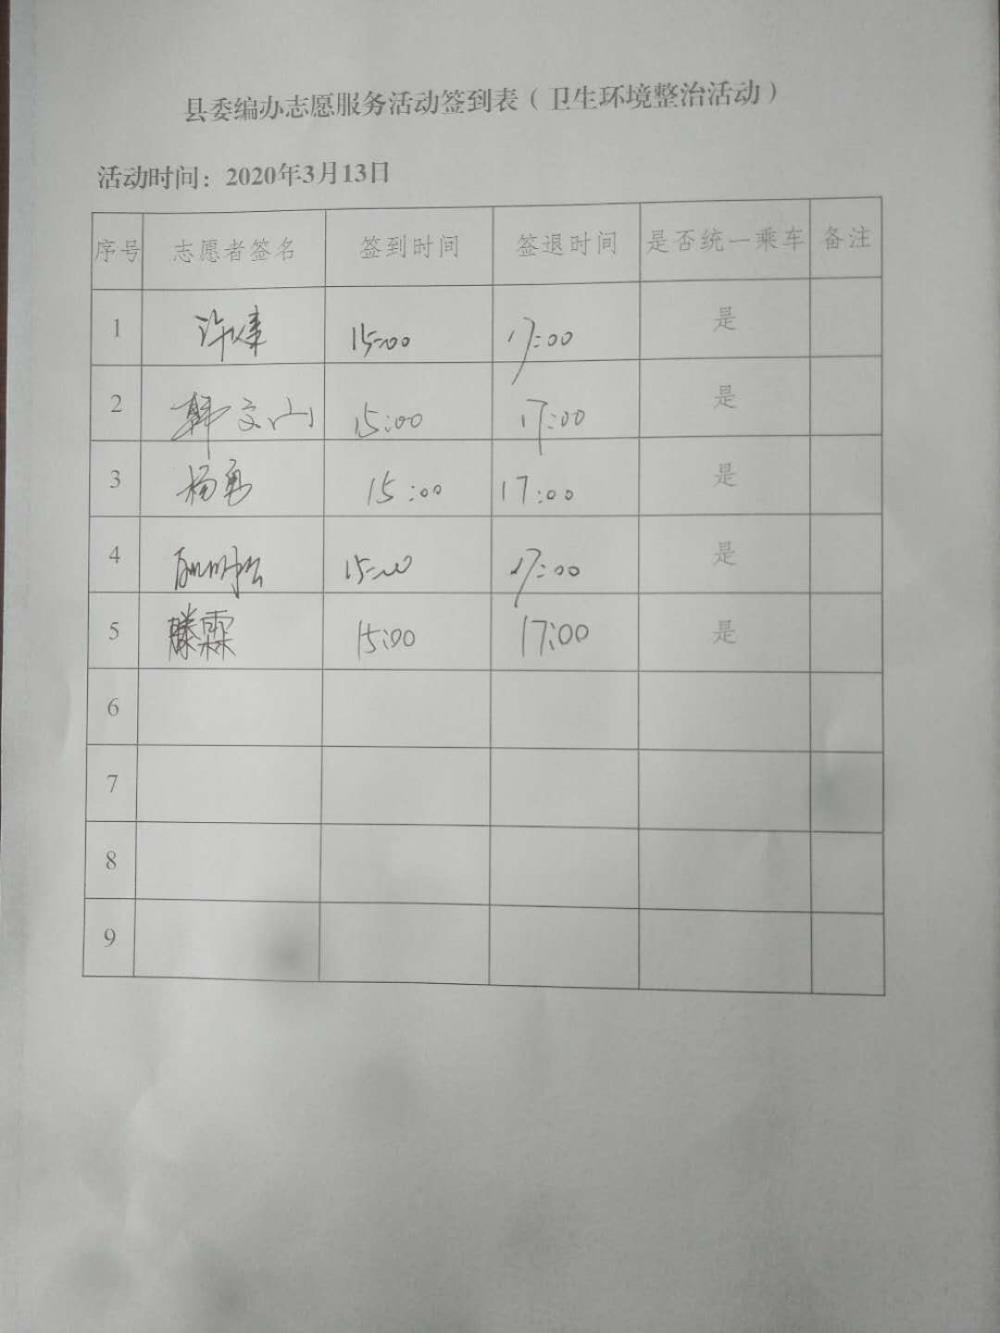 县委编办志愿服务活动签到表（卫生环境整治活动）
活动时间：2020年3月13日
序号 志愿者签名 签到时间 签退时间 是否统一乘车 备注
1 许建 15:00 17:00 是
2 韩文山 15:00 17:00 是
3 杨勇 15:00 17:00 是
4 15:00 17:00 是
5 滕霖 15:00 17:00 是
6
7
8
9